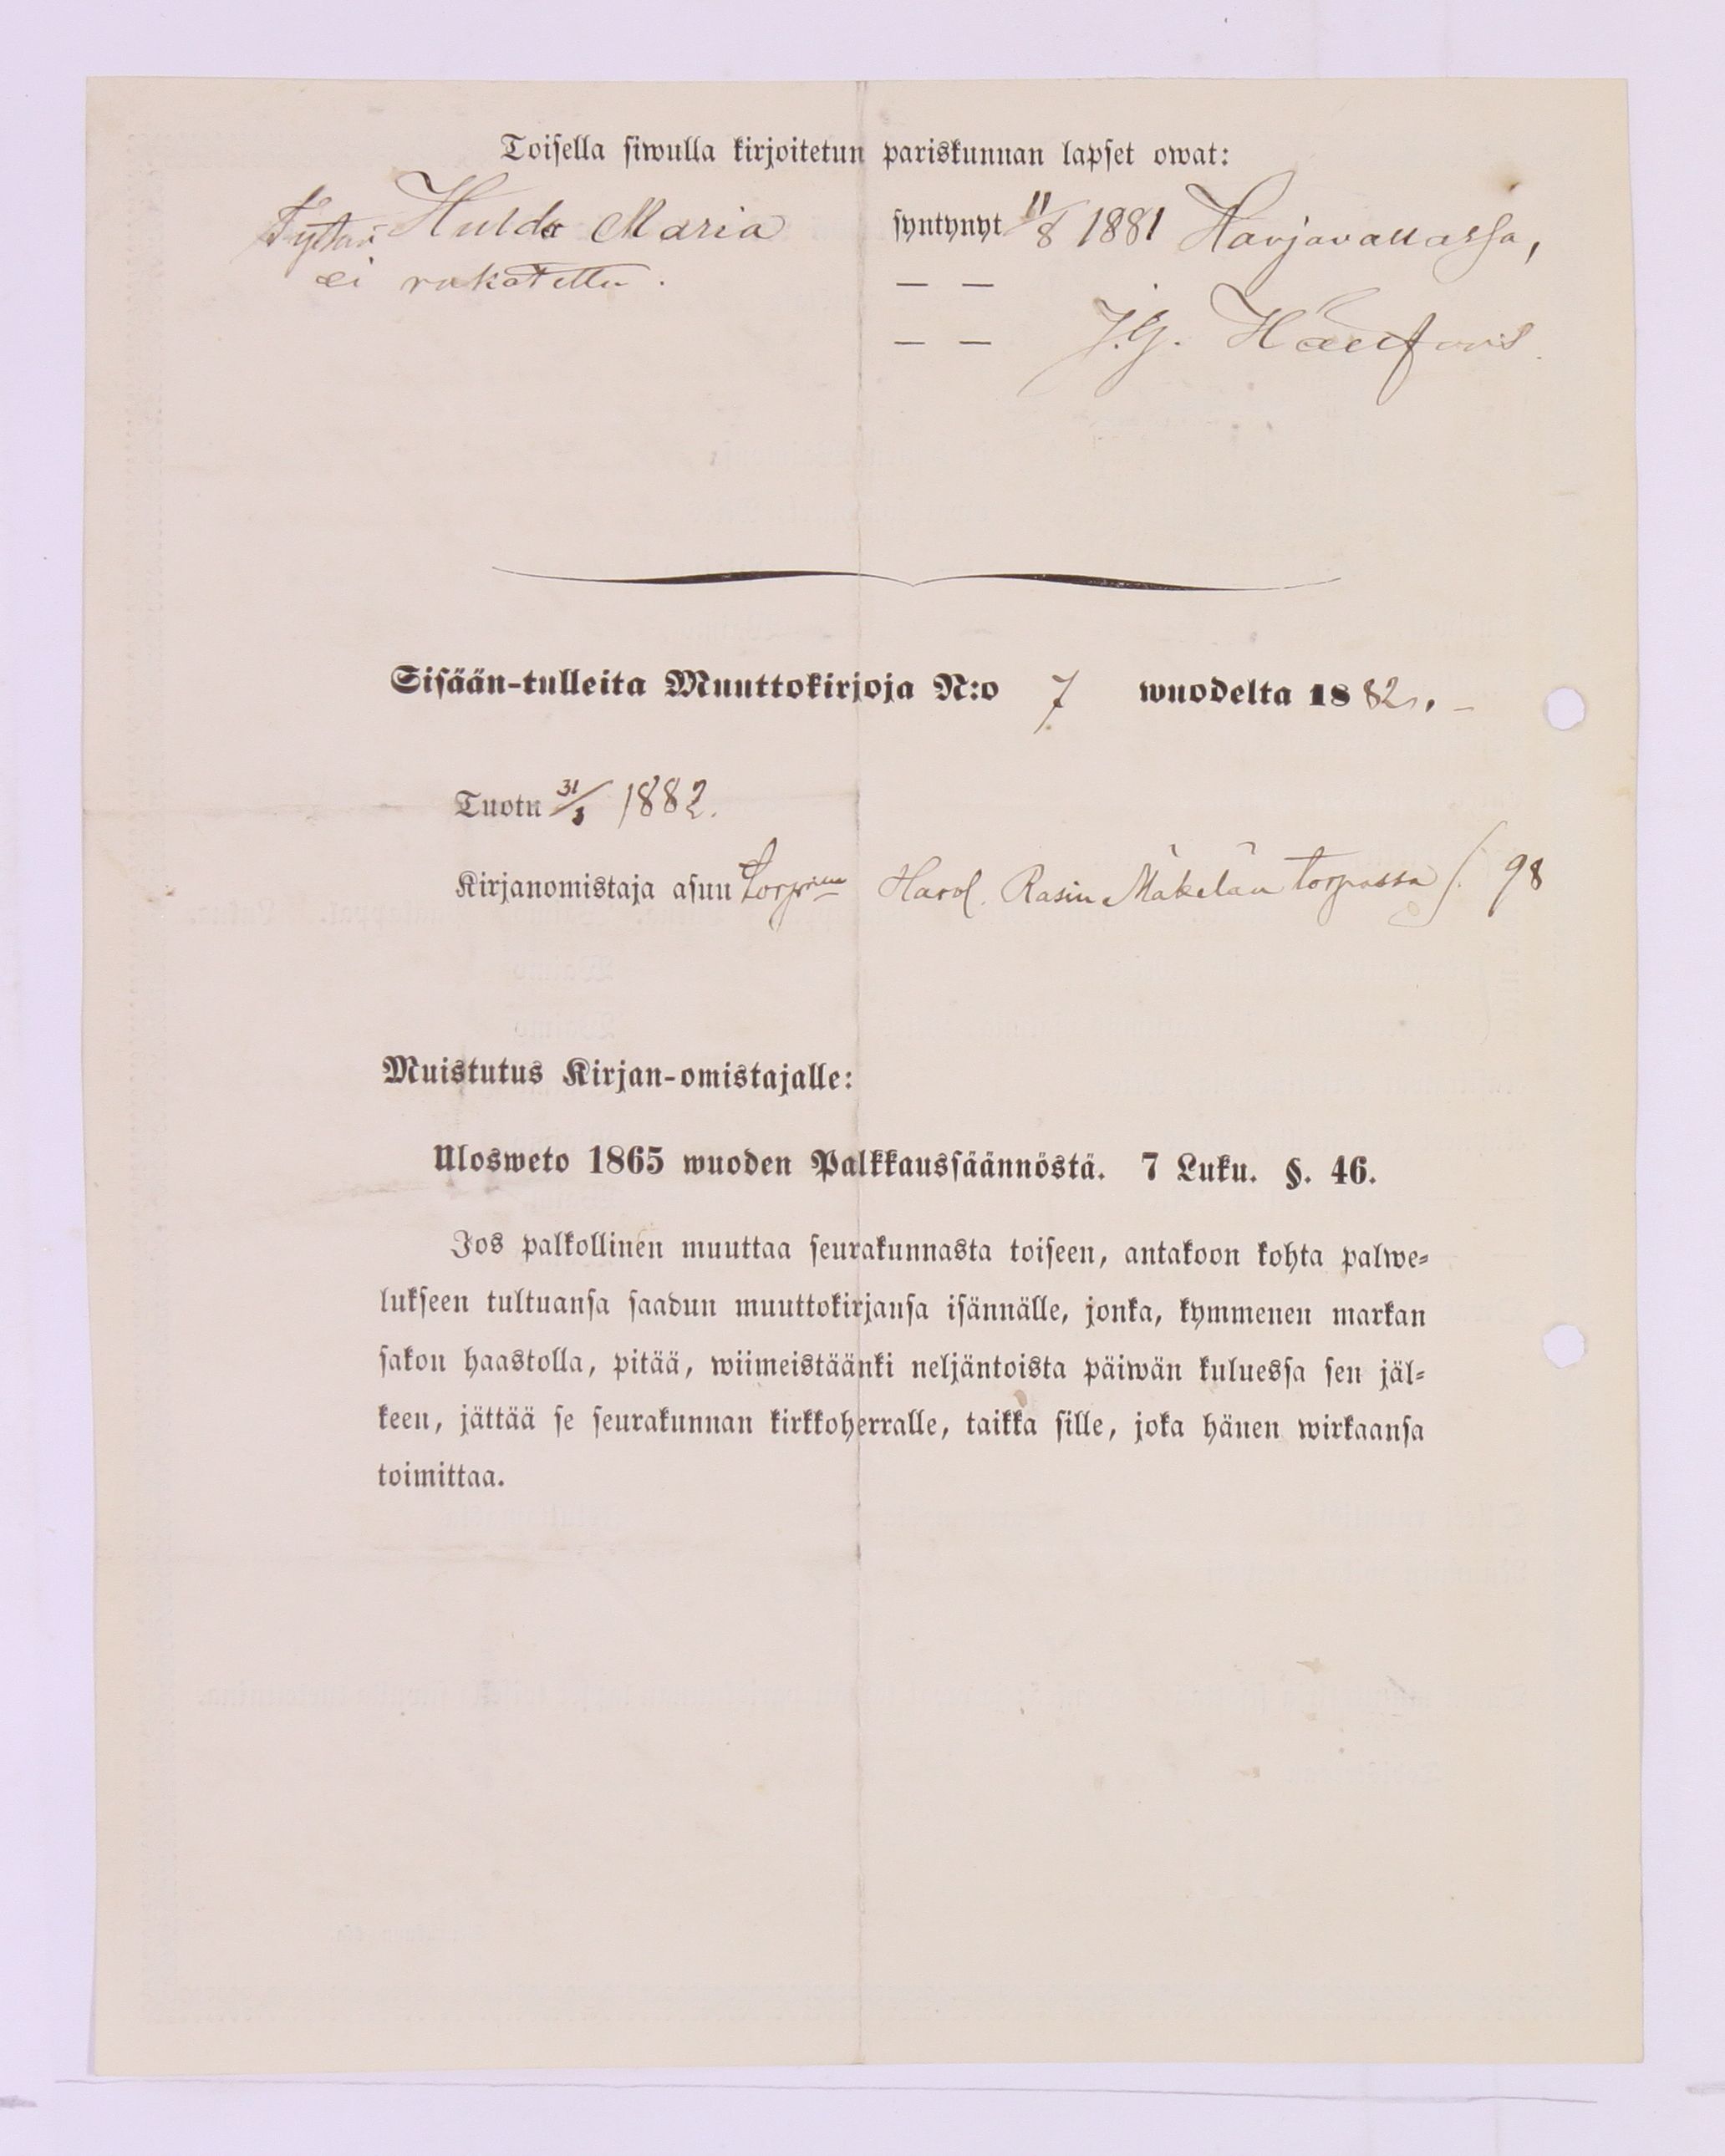 Toisella siwulla kirjoitetun pariskunnan lapset owat:
Tytär Hulda Maria syntynyt 11/8 1881 Harjavallassa,
ei rokotettu. — —
— — J.G.
Sisään-tulleita Muuttokirjoja N:o 7 wuodelta 1882
Tuotu 31/3 1882.
Kirjanomistaja asuu Harol. Rasin Mäkelän torpassa /. 98
Muistutus Kirjan-omistajalle:
Ulosweto 1865 wuoden Palkkaussäännöstä. 7 Luku. §. 46.
Jos palkollinen muuttaa seurakunnasta toiseen, antakoon kohta palwe-
lukseen tultuansa saadun muuttokirjansa isännälle, jonka, kymmenen markan
sakon haastolla, pitää, wiimeistäänki neljäntoista päiwän kuluessa sen jäl-
keen, jättää se seurakunnan kirkkoherralle, taikka sille, joka hänen wirkaansa
toimittaa.